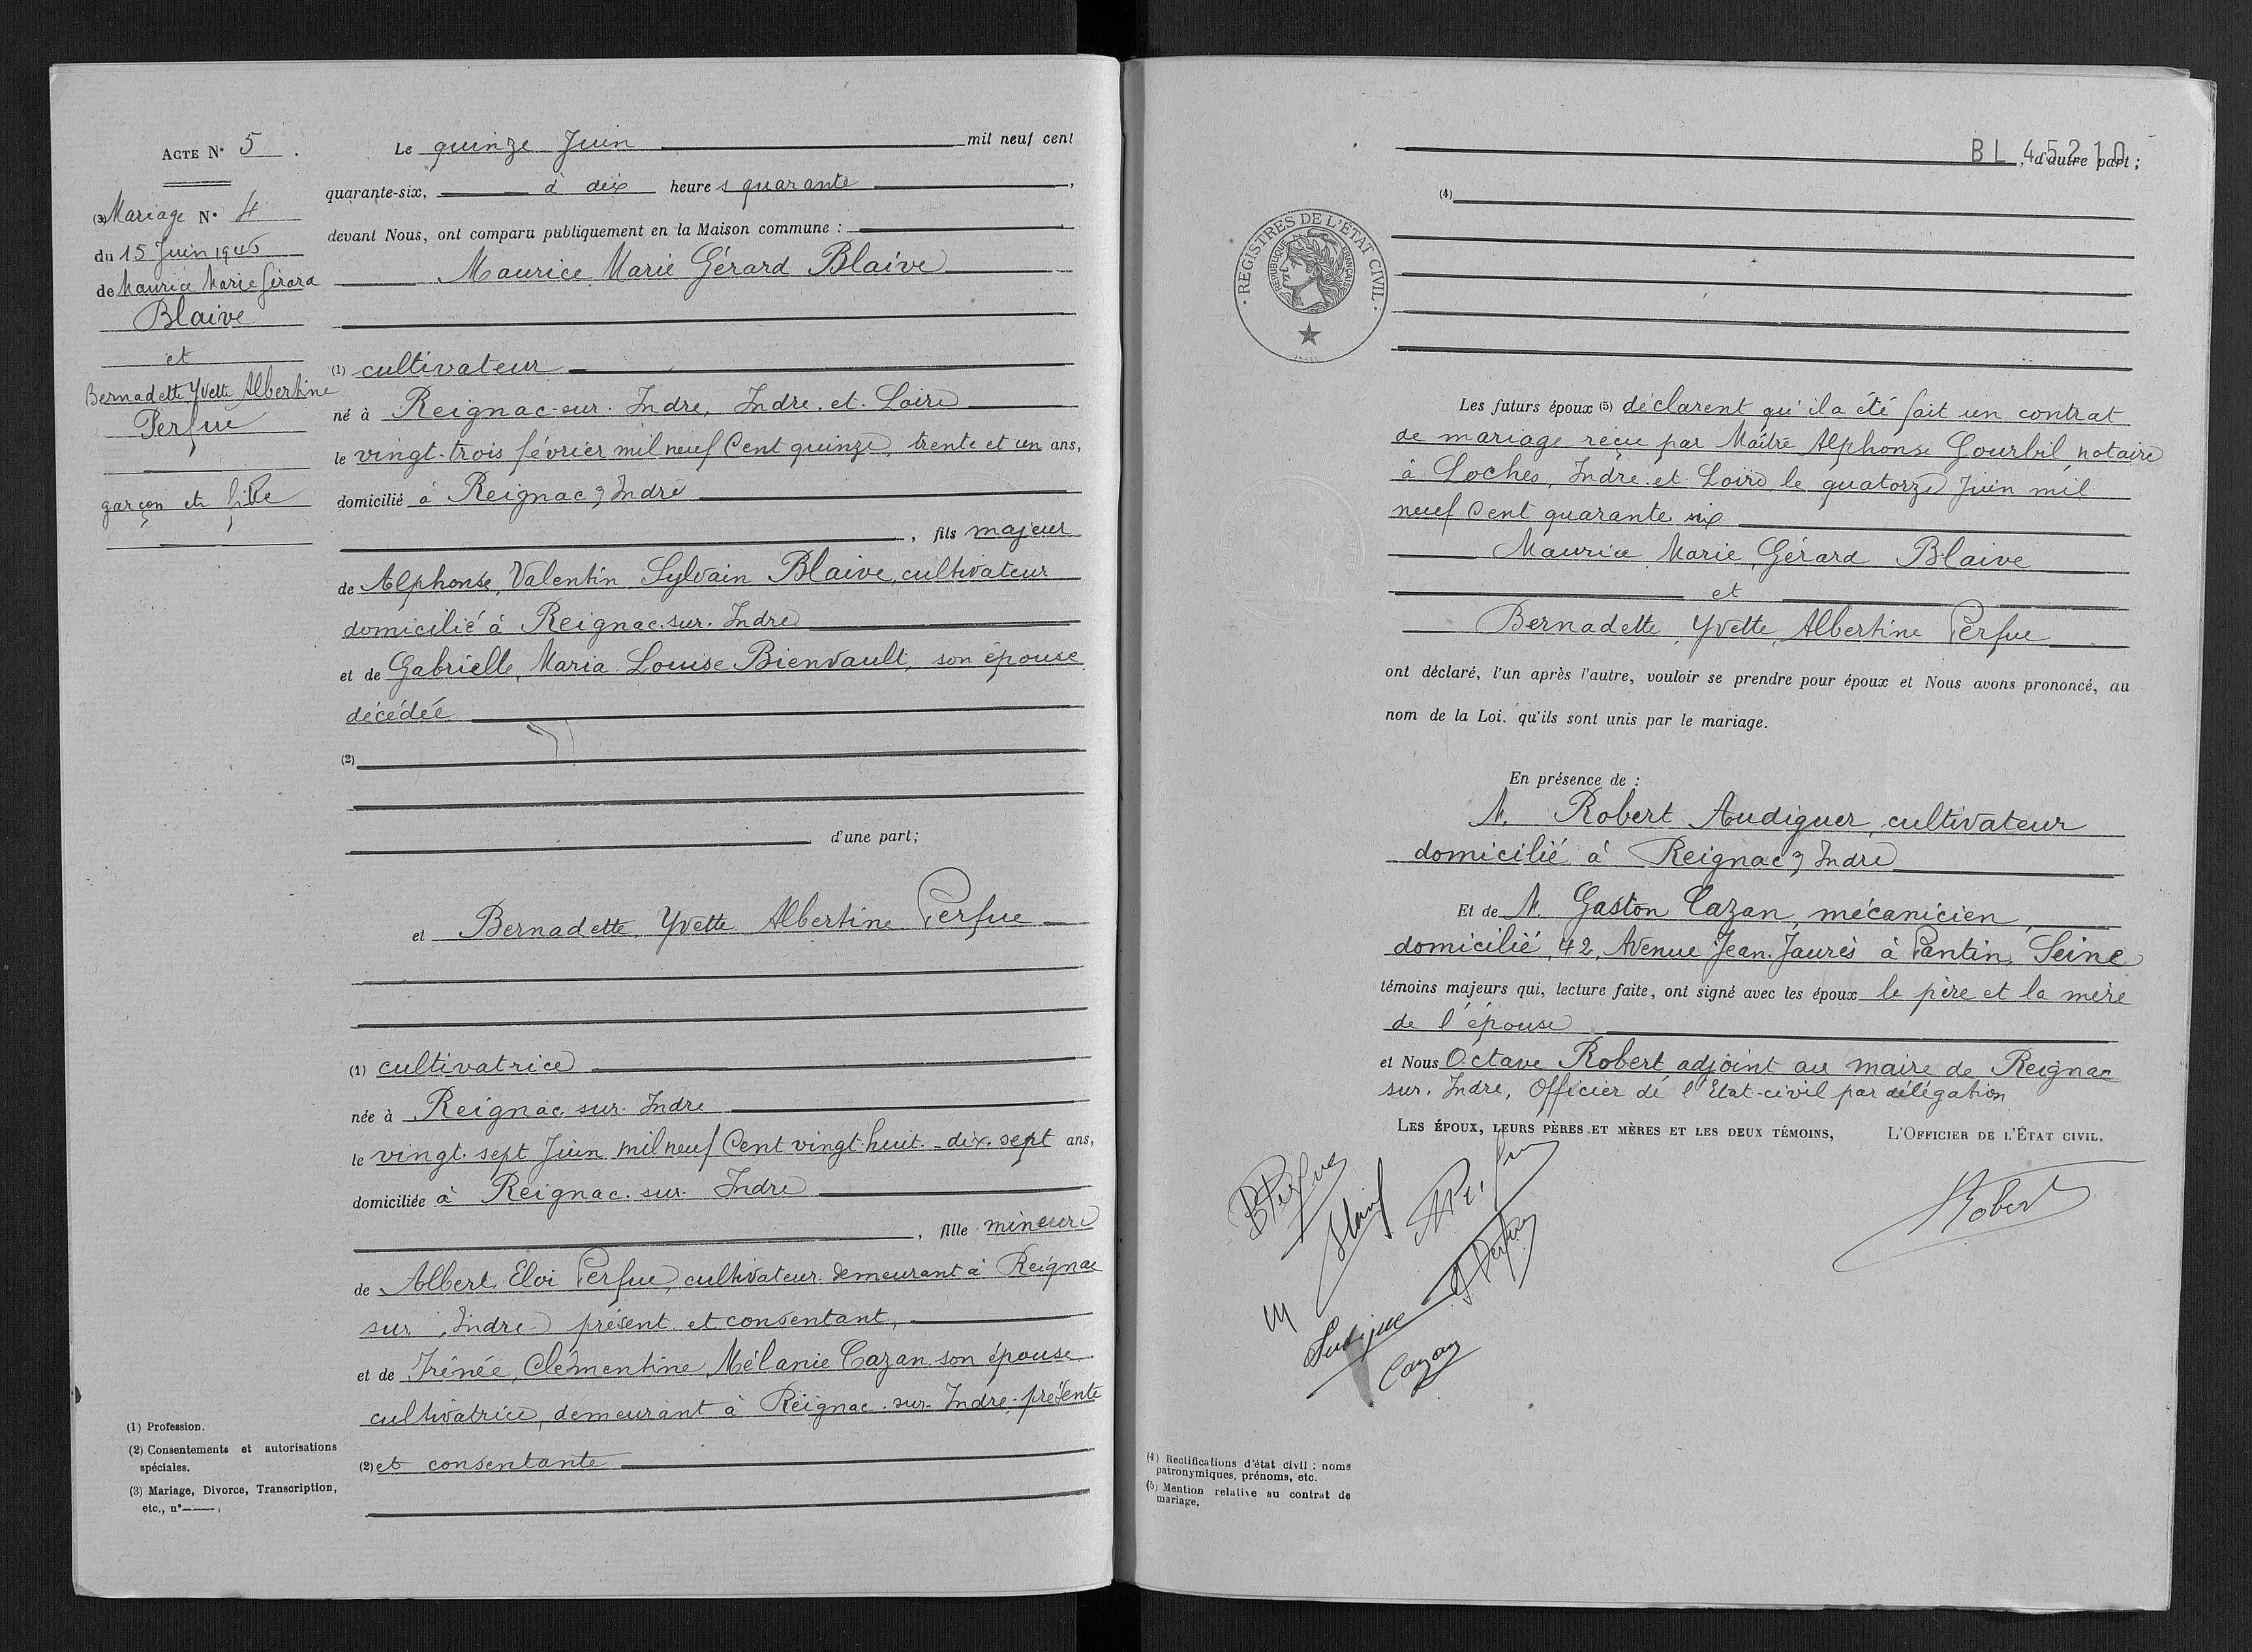 ACTE N° 5.
(3) Mariage N° 4
du 15 Juin 1946
de Maurice Marie Gérard
Blaive
et
Bernadette Yvette Albertine
Perfue
garçon et fille
(1) Profession.
(2) Consentements et autorisations
spéciales.
(3) Mariage, Divorce, Transcription,
etc., n°
Le quinze Juin mil neuf cent
quarante-six, à dix heures quarante,
devant Nous, ont comparu publiquement en la Maison commune :
Maurice Marie Gérard Blaive
(1) cultivateur
né à Reignac-sur-Indre, Indre-et-Loire
le vingt-trois février mil neuf Cent quinze, trente et un ans,
domicilié à Reignac s/ Indre
, fils majeur
de Alphonse, Valentin, Sylvain Blaive, cultivateur
domicilié à Reignac-sur-Indre
et de Gabrielle, Maria Louise Bienvault, son épouse
décédée
(2)
d'une part;
et Bernadette Yvette Albertine Perfue
(1) cultivatrice
née à Reignac-sur-Indre
le vingt-sept Juin mil neuf Cent vingt-huit - dix-sept ans,
domiciliée à Reignac-sur-Indre
, fille mineure
de Albert Eloi Perfue, cultivateur demeurant à Reignac
sur Indre présent et consentant,
et de Irénée, Clémentine, Mélanie Cazan son épouse
cultivatrice, demeurant à Reignac-sur-Indre, présente
(2) et consentante
BL 45210
, d'autre part;
(4)
REGISTRES DE L'ETAT CIVIL
REPUBLIQUE FRANCAISE
Les futurs époux (5) déclarent qu'il a été fait un contrat
de mariage reçu par Maître Alphonse Gourbil notaire
à Loches, Indre-et-Loire, le quatorze Juin mil
neuf Cent quarante six
Maurice Marie Gérard Blaive
et
Bernadette Yvette Albertine Perfue
ont déclaré, l'un après l'autre, vouloir se prendre pour époux et Nous avons prononcé, au
nom de la Loi. qu'ils sont unis par le mariage.
En présence de :
M. Robert Audiguer, cultivateur
domicilié à Reignac s/ Indre
Et de M. Gaston Cazan, mécanicien,
domicilié, 42, Avenue Jean-Jaurès à Pantin, Seine
témoins majeurs qui, lecture faite, ont signé avec les époux le père et la mère
de l'épouse
et Nous Octave Robert, adjoint au maire de Reignac
sur-Indre, Officier de l'Etat-civil par délégation
LES ÉPOUX, LEURS PÈRES ET MÈRES ET LES DEUX TÉMOINS,
L'OFFICIER DE L'ÉTAT CIVIL.
B Perfue
Blaive
A Perfue
Cazan
Robert
(4) Rectifications d'état civil : noms
patronymiques, prénoms, etc.
(5) Mention relative au contrat de
mariage.